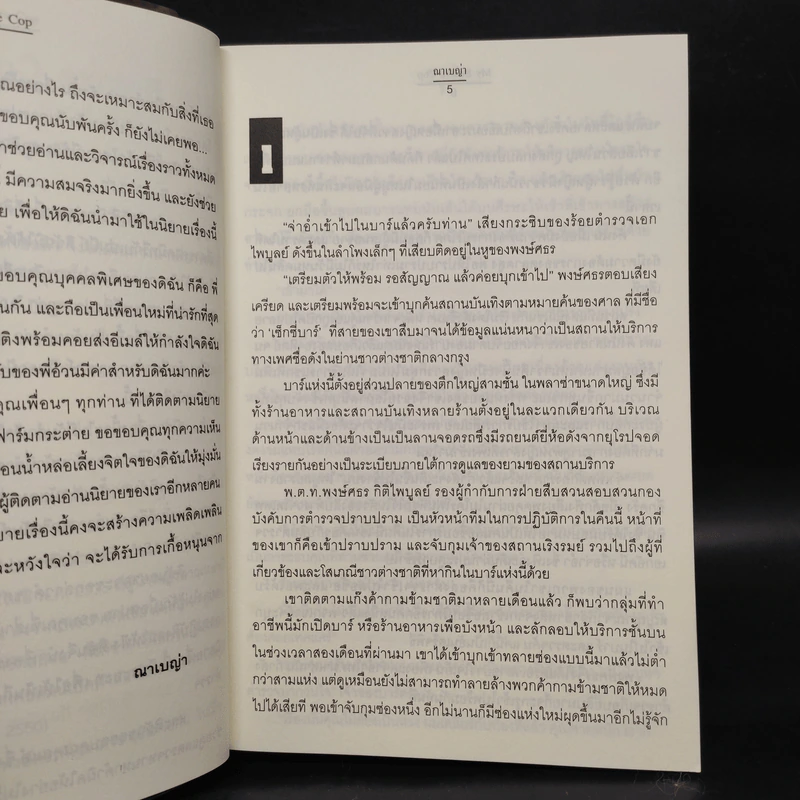 e Cop
ณอย่างไร ถึงจะเหมาะสมกับสิ่งที่เธอ
ขอบคุณนับพันครั้ง ก็ยังไม่เคยพอ...
าช่วยอ่านและวิจารณ์เรื่องราวทั้งหมด
มีความสมจริงมากยิ่งขึ้น และยังช่วย
ย เพื่อให้ดิฉันนำมาใช้ในนิยายเรื่องนี้
ขอบคุณบุคคลพิเศษของดิฉัน ก็คือ พี่
นกัน และถือเป็นเพื่อนใหม่ที่น่ารักที่สุด
ติงพร้อมคอยส่งอีเมล์ให้กำลังใจดิฉัน
ับของพี่อ้วนมีค่าสำหรับดิฉันมากค่ะ
คุณเพื่อนๆ ทุกท่าน ที่ได้ติดตามนิยาย
ฟาร์มกระต่าย ขอขอบคุณทุกความเห็น
อนน้ำหล่อเลี้ยงจิตใจของดิฉันให้มุ่งมั่น
ผู้ติดตามอ่านนิยายของเราอีกหลายคน
ยายเรื่องนี้คงจะสร้างความเพลิดเพลิน
ละหวังใจว่า จะได้รับการเกื้อหนุนจาก
ณาเบญ่า
ณาเบญ่า
5
1
“จ่าอ่ำเข้าไปในบาร์แล้วครับท่าน” เสียงกระซิบของร้อยตำรวจเอก
ไพบูลย์ ดังขึ้นในลำโพงเล็กๆ ที่เสียบติดอยู่ในหูของพงษ์ศธร
“เตรียมตัวให้พร้อม รอสัญญาณ แล้วค่อยบุกเข้าไป” พงษ์ศธรตอบเสียง
เครียด และเตรียมพร้อมจะเข้าบุกค้นสถานบันเทิงตามหมายค้นของศาล ที่มีชื่อ
ว่า ‘เซ็กซี่บาร์’ ที่สายของเขาสืบมาจนได้ข้อมูลแน่นหนาว่าเป็นสถานให้บริการ
ทางเพศชื่อดังในย่านชาวต่างชาติกลางกรุง
บาร์แห่งนี้ตั้งอยู่ส่วนปลายของตึกใหญ่สามชั้น ในพลาซ่าขนาดใหญ่ ซึ่งมี
ทั้งร้านอาหารและสถานบันเทิงหลายร้านตั้งอยู่ในละแวกเดียวกัน บริเวณ
ด้านหน้าและด้านข้างเป็นเป็นลานจอดรถซึ่งมีรถยนต์ยี่ห้อดังจากยุโรปจอด
เรียงรายกันอย่างเป็นระเบียบภายใต้การดูแลของยามของสถานบริการ
พ.ต.ท.พงษ์ศธร กิติไพบูลย์ รองผู้กำกับการฝ่ายสืบสวนสอบสวนกอง
บังคับการตำรวจปราบปราม เป็นหัวหน้าทีมในการปฏิบัติการในคืนนี้ หน้าที่
ของเขาก็คือเข้าปราบปราม และจับกุมเจ้าของสถานเริงรมย์ รวมไปถึงผู้ที่
เกี่ยวข้องและโสเภณีชาวต่างชาติที่หากินในบาร์แห่งนี้ด้วย
เขาติดตามแก๊งค้ากามข้ามชาติมาหลายเดือนแล้ว ก็พบว่ากลุ่มที่ทำ
อาชีพนี้มักเปิดบาร์ หรือร้านอาหารเพื่อบังหน้า และลักลอบให้บริการชั้นบน
ในช่วงเวลาสองเดือนที่ผ่านมา เขาได้เข้าบุกเข้าทลายซ่องแบบนี้มาแล้วไม่ต่ำ
กว่าสามแห่ง แต่ดูเหมือนยังไม่สามารถทำลายล้างพวกค้ากามข้ามชาติให้หมด
ไปได้เสียที พอเข้าจับกุมซ่องหนึ่ง อีกไม่นานก็มีซ่องแห่งใหม่ผุดขึ้นมาอีกไม่รู้จัก